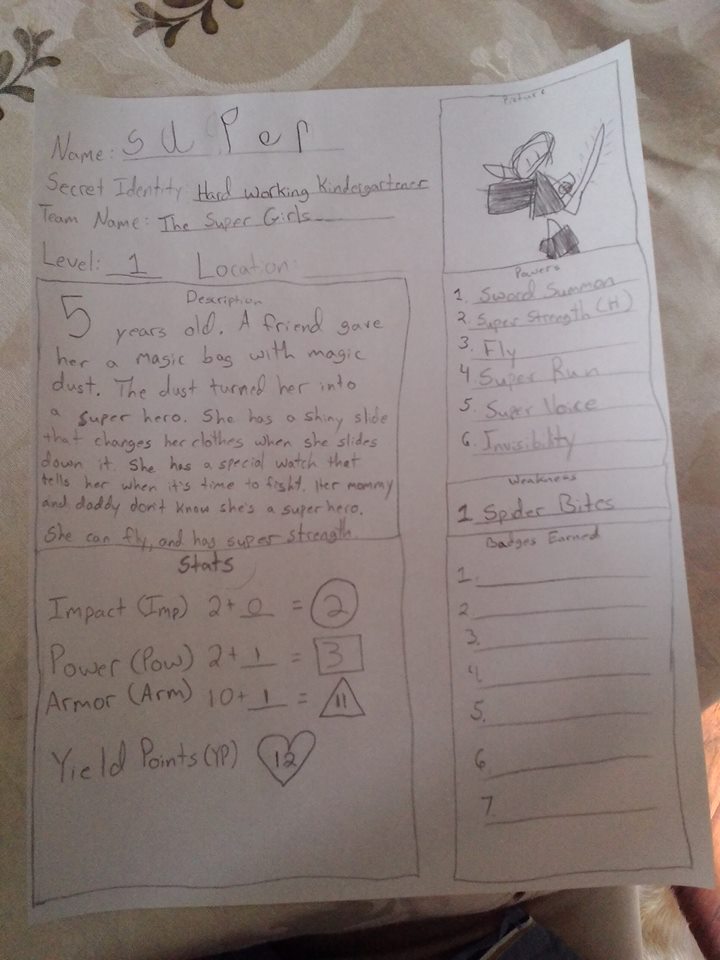 Name: Super
Secret Identity: Hard Working Kindergartener
Team Name: The Super Girls
Level: 1 Location:
Description
5 years old. A friend gave
her a magic bag with magic
dust. The dust turned her into
a super hero. She has a shiny slide
that changes her clothes when she slides
down it. She has a special watch that
tells her when it's time to fight. Her mommy
and daddy don't know she's a super hero.
She can fly, and has super strength.
Stats
Impact (Imp) 2+ 0 = 2
Power (Pow) 2+ 1 = 3
Armor (Arm) 10+ 1 = 11
Yield Points (YP) 12
Picture
Powers
1. Sword Summon
2. Super Strength (H)
3. Fly
4 Super Run
5. Super Voice
6. Invisibility
Weakness
1 Spider Bites
Badges Earned
1.
2.
3.
4.
5.
6.
7.